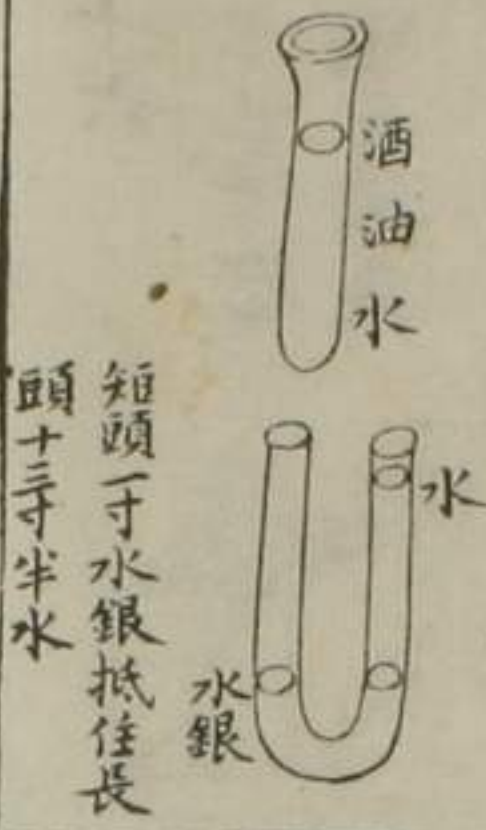 酒
油
水
水
水銀
矩頭一寸水銀抵住長
頭十三寸半水